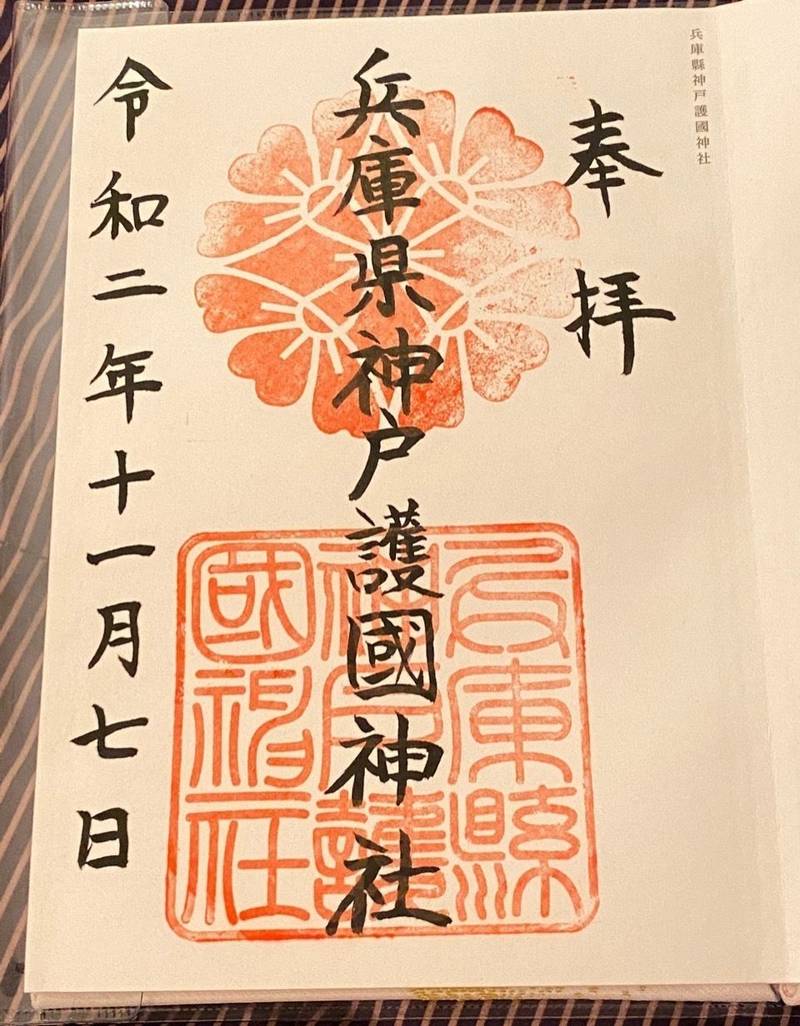 兵庫縣神戸護國神社
奉拝
兵庫県神戸護國神社
兵庫縣
神戸護
國神社
令和二年十一月七日